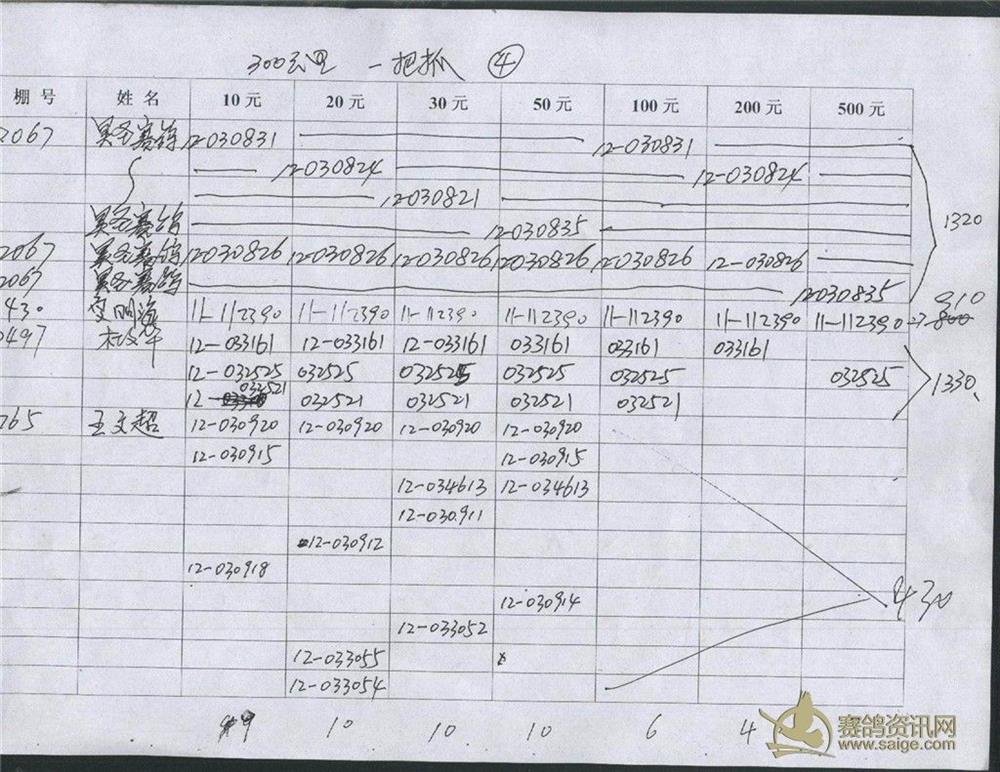 300公里 一把抓 ④
棚号 姓名 10元 20元 30元 50元 100元 200元 500元
2067 赛鸽 12-030831 12-030831
12-030824 12-030824
12-030821
赛鸽 12-030835 1320
2067 赛鸽 12-030826 12-030826 12-030826 12-030826 12-030826 12-030826
2067 赛鸽 12-030835
430 李明海 11-112390 11-112390 11-112390 11-112390 11-112390 11-112390 11-112390 910
0497 12-033161 12-033161 12-033161 033161 033161 033161
12-032525 032525 032525 032525 032525 032525 1330
12- 032521 032521 032521 032521 032521
765 王文超 12-030920 12-030920 12-030920 12-030920
12-030915 12-030915
12-034613 12-034613
12-030911
12-030912
12-030918
12-030914 430
12-033052
12-033055
12-033054
9 10 10 10 6 4
赛鸽资讯网
www.saige.com